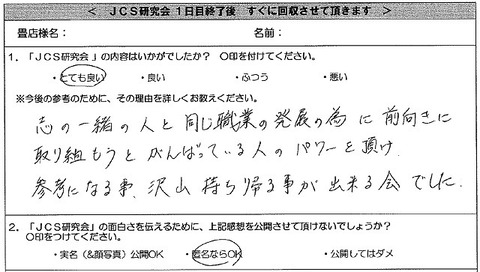 < JCS研究会 1日目終了後 すぐに回収させて頂きます >
畳店様名： 名前：
1．「JCS研究会」の内容はいかがでしたか？ 〇印を付けてください。
・とても良い ・良い ・ふつう ・悪い
※今後の参考のために、その理由を詳しくお教えください。
志の一緒の人と同じ職業の発展の為に前向きに
取り組もうとがんばっている人のパワーを頂け
参考になる事、沢山持ち帰る事が出来る会でした。
2．「JCS研究会」の面白さを伝えるために、上記感想を公開させて頂けないでしょうか？
〇印をつけてください。
・実名（&顔写真）公開OK ・匿名ならOK ・公開してはダメ